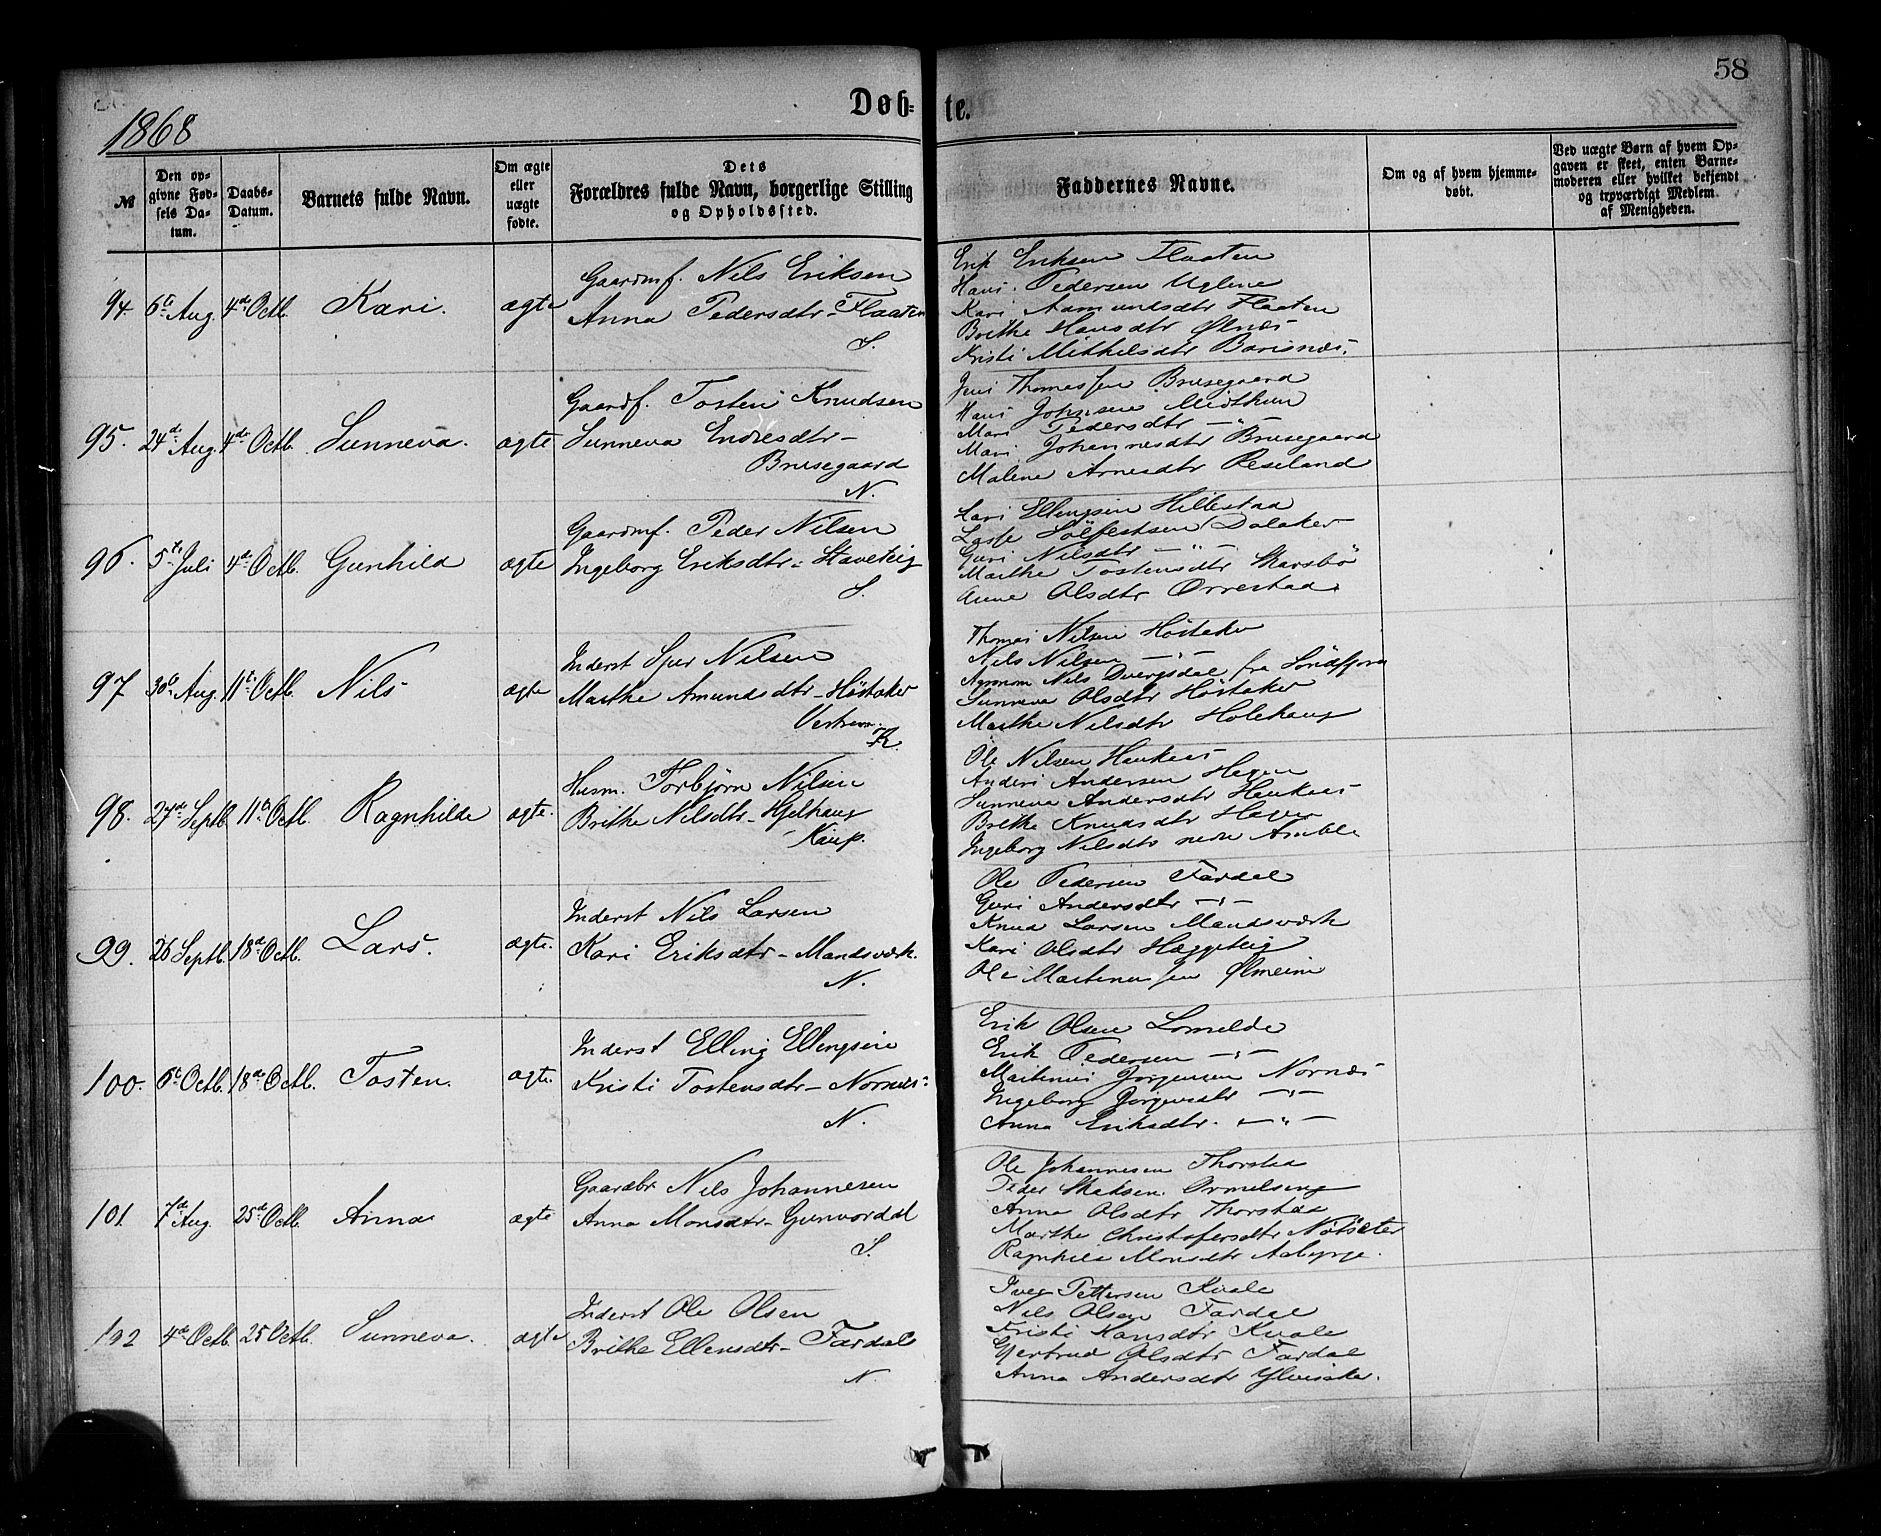 58
1868
Døb-te.
№
Den opgivne Fødsels Datum.
Daabs-Datum.
Barnets fulde Navn.
Om ægte eller uægte fødte.
Dets Forældres fulde Navn, borgerlige Stilling og Opholdssted.
Faddernes Navne.
Om og af hvem hjemmedøbt.
Ved uægte Børn af hvem Opgaven er skeet, enten Barnemoderen eller hvilket bekjendt og troværdigt Medlem af Menigheden.
94 6te Aug. 4de Octb. Kari. ægte
Gaardmf. Nils Eriksen
Anna Pedersdtr - Flaaten
S.
Erik Eriksen Flaaten
Hans Pedersen
Kari Aamundsdtr Flaaten
Brithe Hansdtr Ølnæs
Kristi Mikkelsdtr Barsnæs.
95. 24de Aug. 4de Octb. Sunneva. ægte
Gaardf. Tosten Knudsen
Sunneva Endresdtr -
Brusegaard
N.
Jens Thomassen Brusegaard
Hans Johnsen Midthun
Mari Pedersdtr - " -
Mari Johannesdtr Brusegaard
Malene Arnesdtr Reseland
96. 5te Juli 4de Octb. Gunhild ægte
Gaardmf. Peder Nilsen
Ingeborg Eriksdtr - Staveteig
S.
Ellingsen Hillestad
Lasse Sølfestsen Dalaker
Guri Nilsdtr - " -
Marthe Tostensdtr Skarsbø
Anne Olsdtr Ørrestad
97 30te Aug. 11te Octb. Nils ægte
Inderst Sjur Nilsen
Marthe Amundsdtr - Høstaker
Vestrem.
K.
Thomas Nilsen Høstaker
Nils Nilsen - " -
Agronom Nils Dvergsdal fra Søndfjord
Sunneva Olsdtr Høstaker
Marthe Nilsdtr Holehaug
98. 27de Septb. 11te Octb. Ragnhilde ægte.
Husm. Torbjørn Nilsen
Brithe Nilsdtr - Hjelhaug
Kaup.
Ole Nilsen Haukaas
Anders Andersen Hagen
Sunneva Andersdtr Haukaas
Brithe Knudsdtr Hagen
Ingeborg Nilsdtr nedre Amble
99. 26 Septb. 18de Octb. Lars. ægte.
Inderst Nils Larsen
Kari Eriksdtr - Mandsværk.
N.
Ole Pedersen Fardal
Guri Andersdtr - " -
Knud Larsen Mandsværk
Kari Olsdtr Hæggeteig
Ole Martinussen Ølmeim
100. 6te Octb. 18de Octb. Tosten. ægte.
Inderst Elling Ellingsen
Kristi Tostensdtr - Nornæs
N.
Erik Olsen Lomelde
Erik Pedersen - " -
Martinus Jørgensen Nornæs
Ingeborg Jørgensdtr - " -
Anna Eriksdtr. - " -
101 7de Aug. 25de Octb. Anna ægte
Gaardbr. Nils Johannesen
Anna Monsdtr - Gunvordal
S.
Ole Johannesen Thorstad
Peder Ormelseng
Anna Olsdtr Thorstad
Marthe Christofersdtr Nøtsæter
Ragnhild Monsdtr Aaberge.
102 4de Octb. 25 Octb. Sunneva. ægte
Inderst Ole Olsen
Brithe Ellensdtr - Fardal
N.
Iver Pettersen Kvale
Nils Olsen Fardal
Kristi Hansdtr Kvale
Gjertrud Olsdtr Fardal
Anna Andersdtr Ylvisaker.